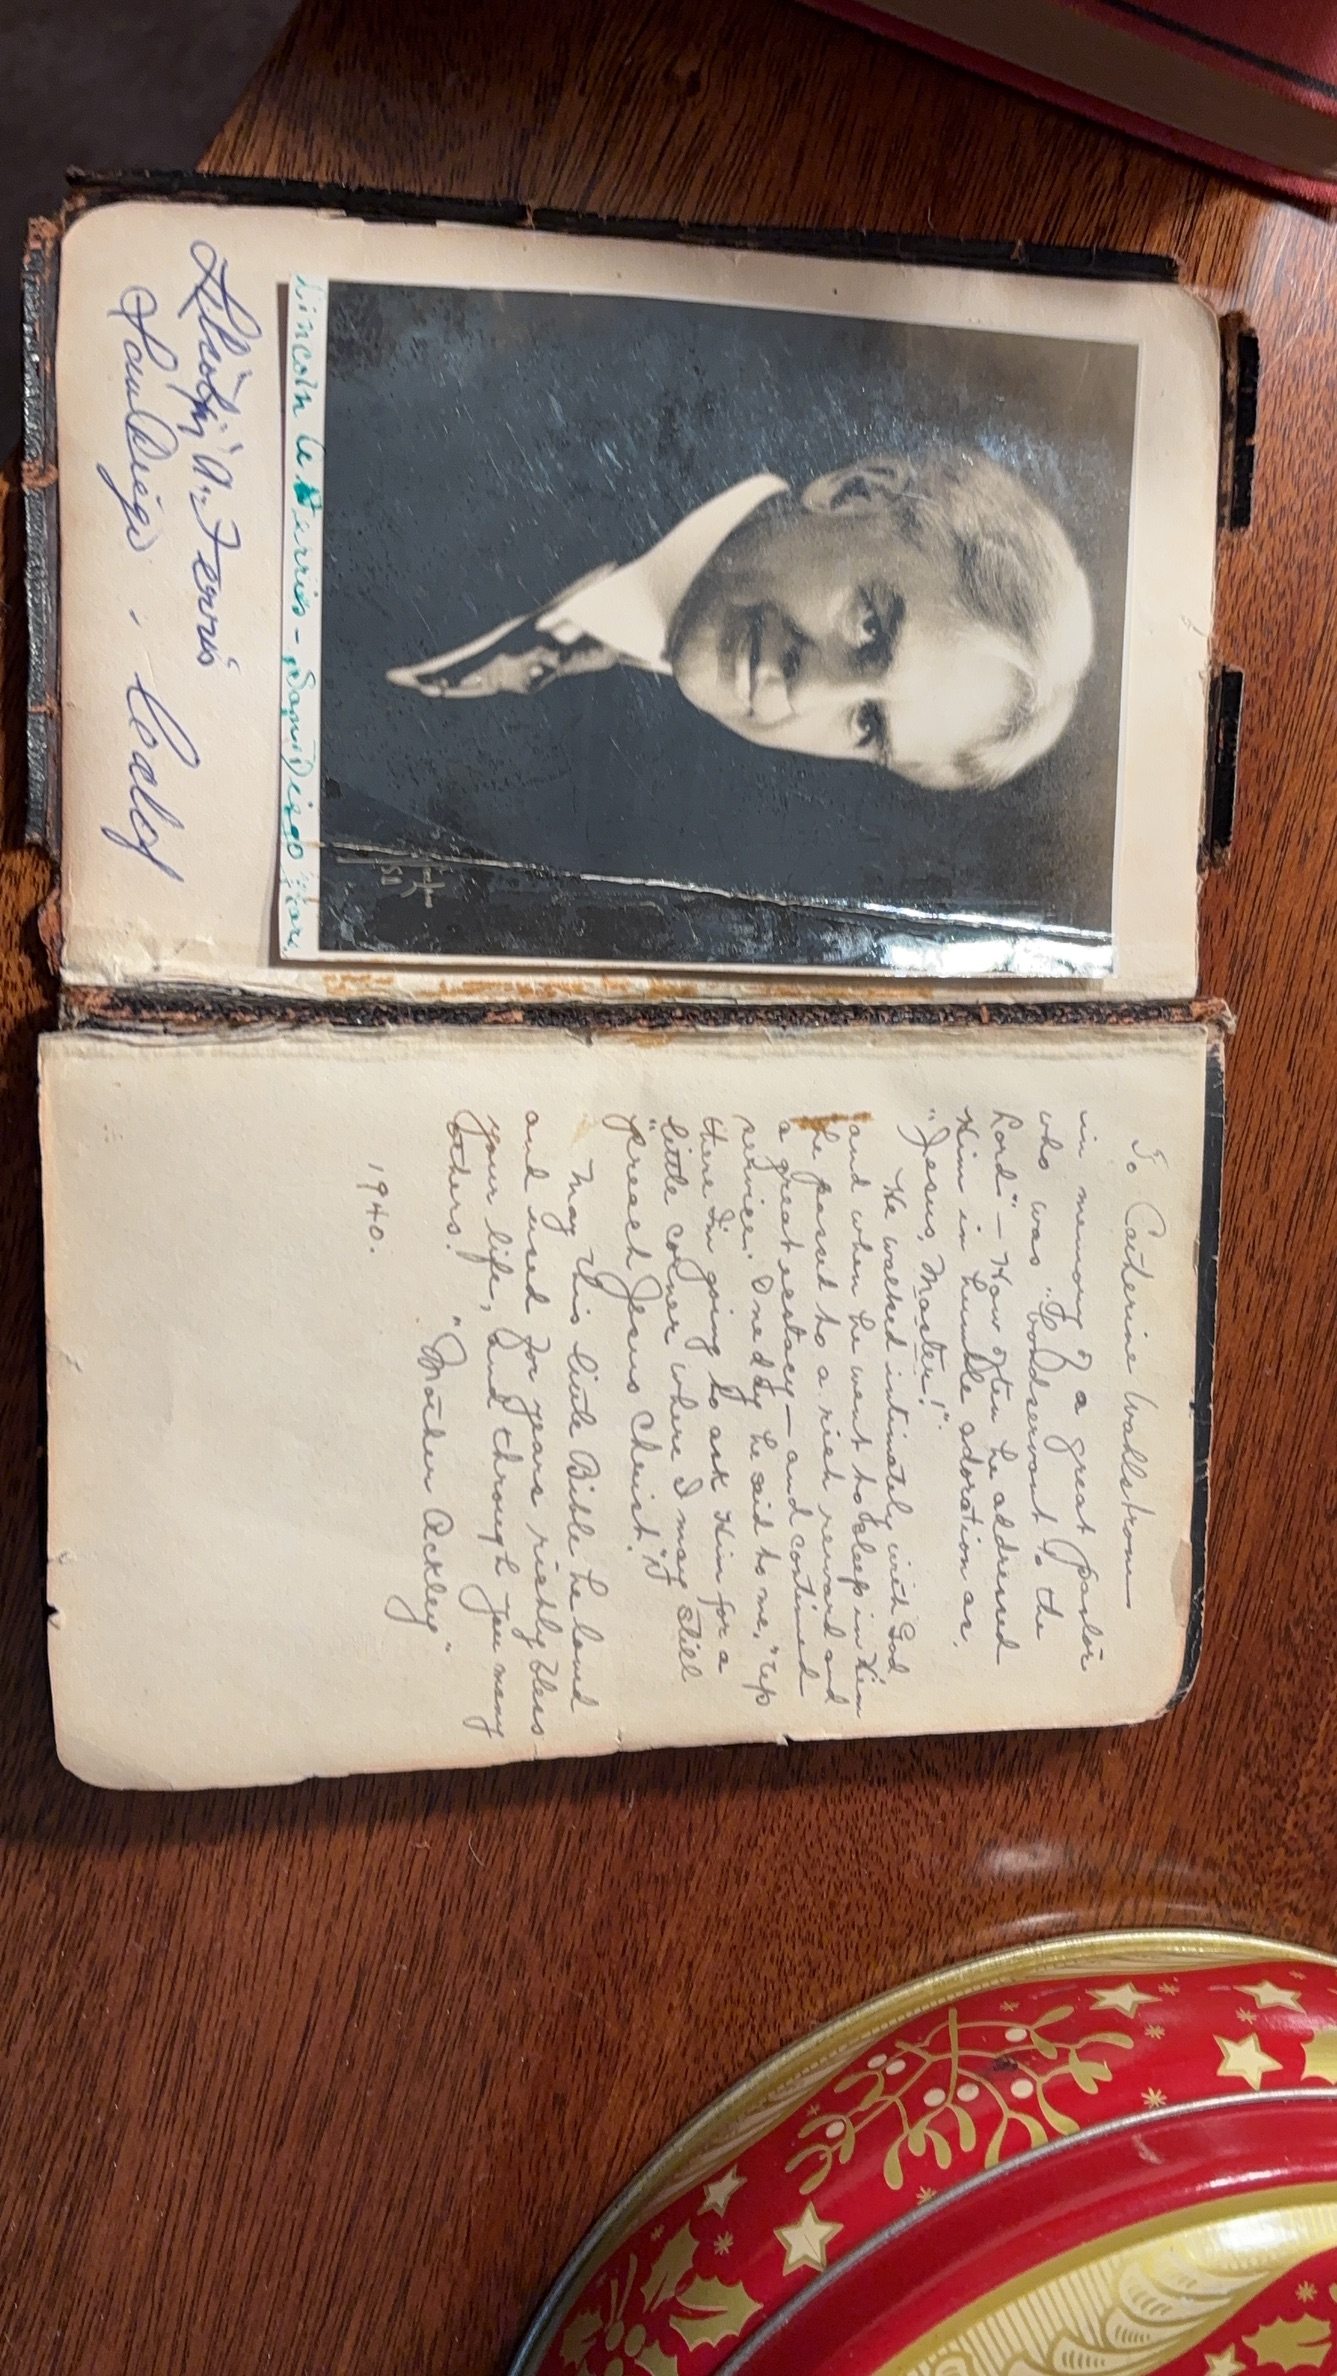 Lincoln A. Ferris - San Diego
A. Ferris
San Diego, Calif
To Catherine Wallstrom
in memory of a great pastor
who was "Bondservant to the
Lord" - How often he addressed
Him in humble adoration as,
"Jesus, Master!"
He walked intimately with God
and when he went to sleep in Him
he passed to a rich reward and
a great ecstacy - and continued
service. One day he said to me, "Up
there I'm going to ask Him for a
little corner where I may still
preach Jesus Christ."
May this little Bible he loved
and used for years richly bless
your life, and through you many
others.
"Mother Ackley"
1940.